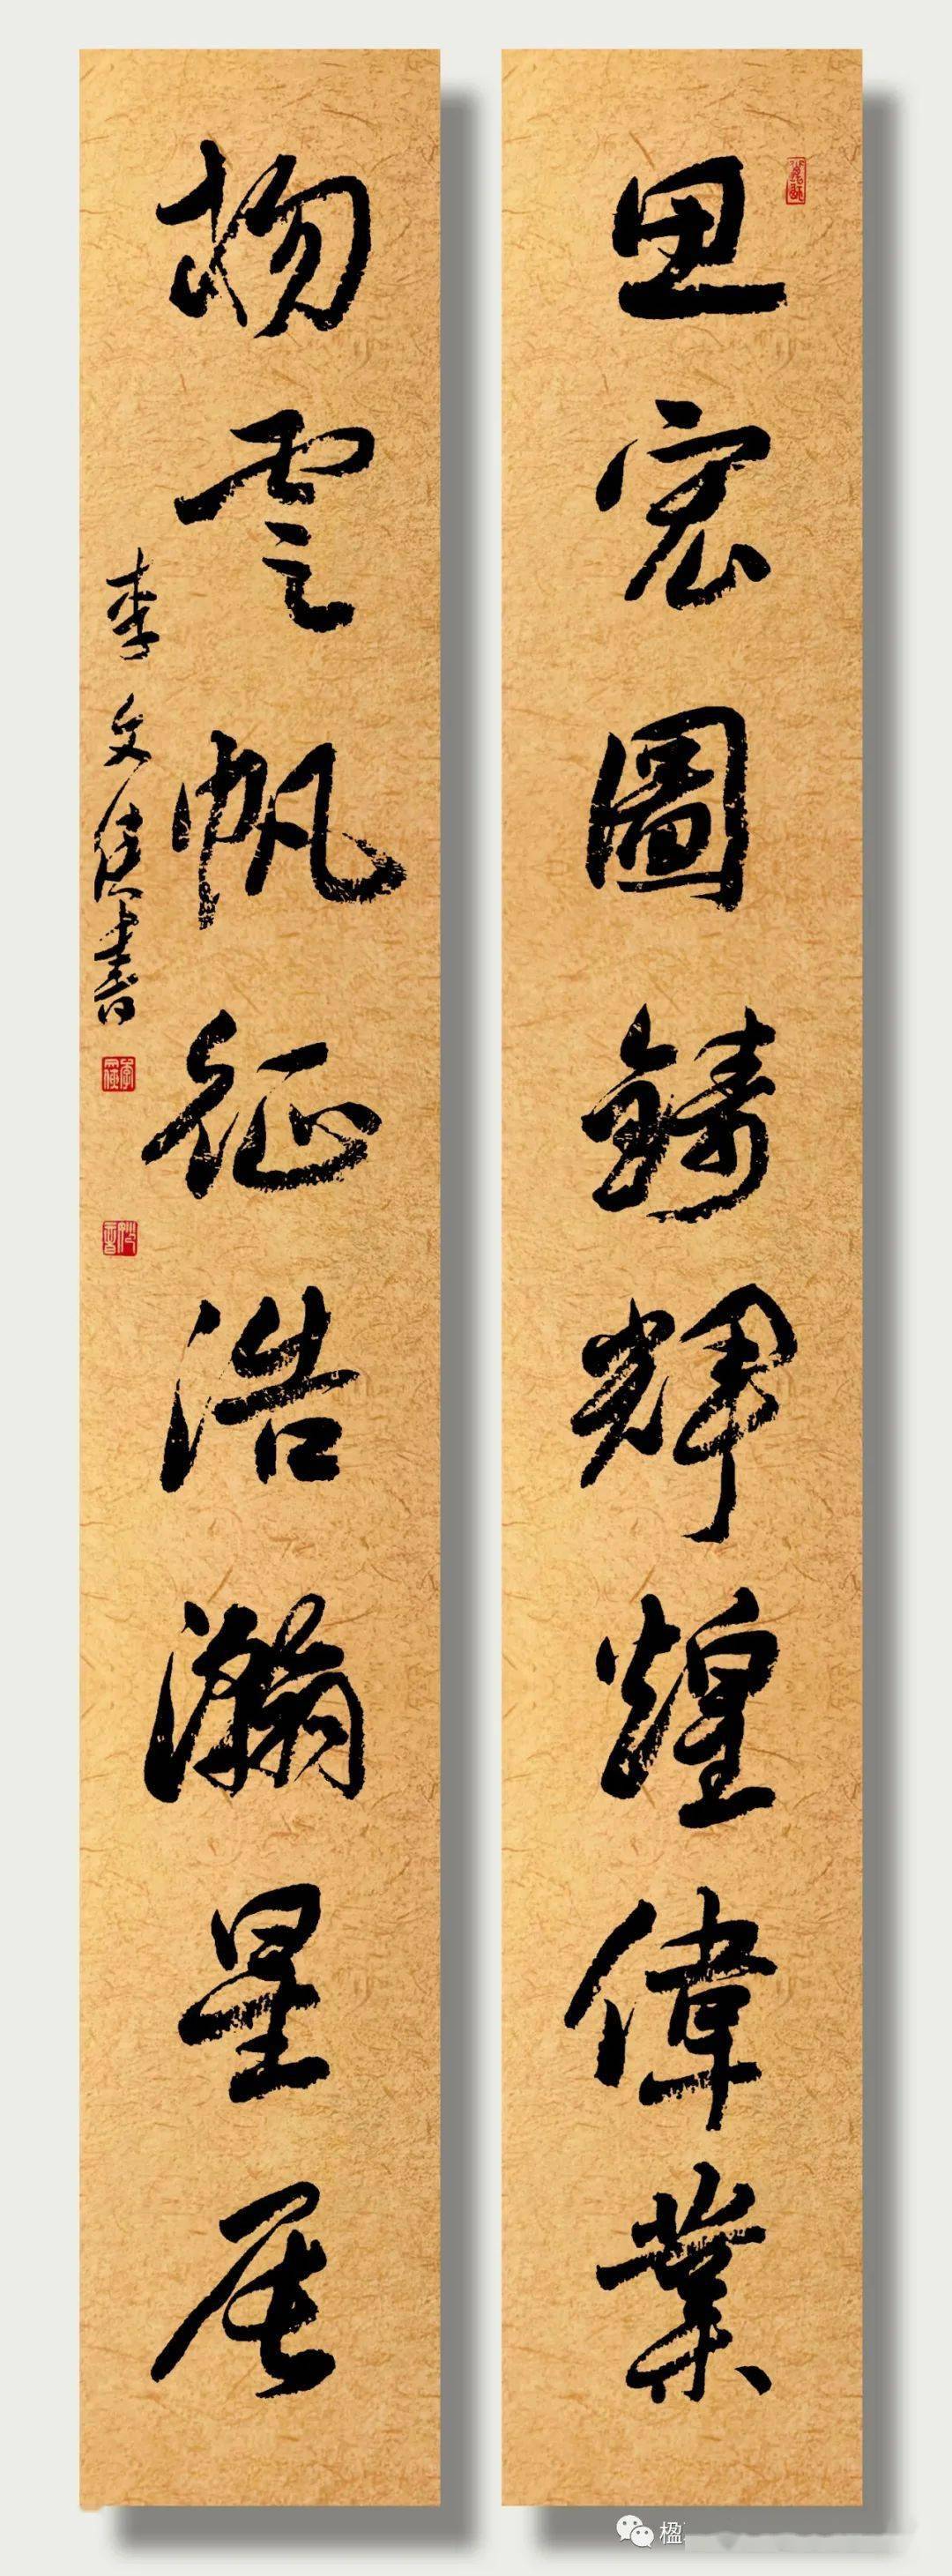 思宏圖鑄輝煌偉業
揚雲帆征浩瀚星辰
李文書
楹